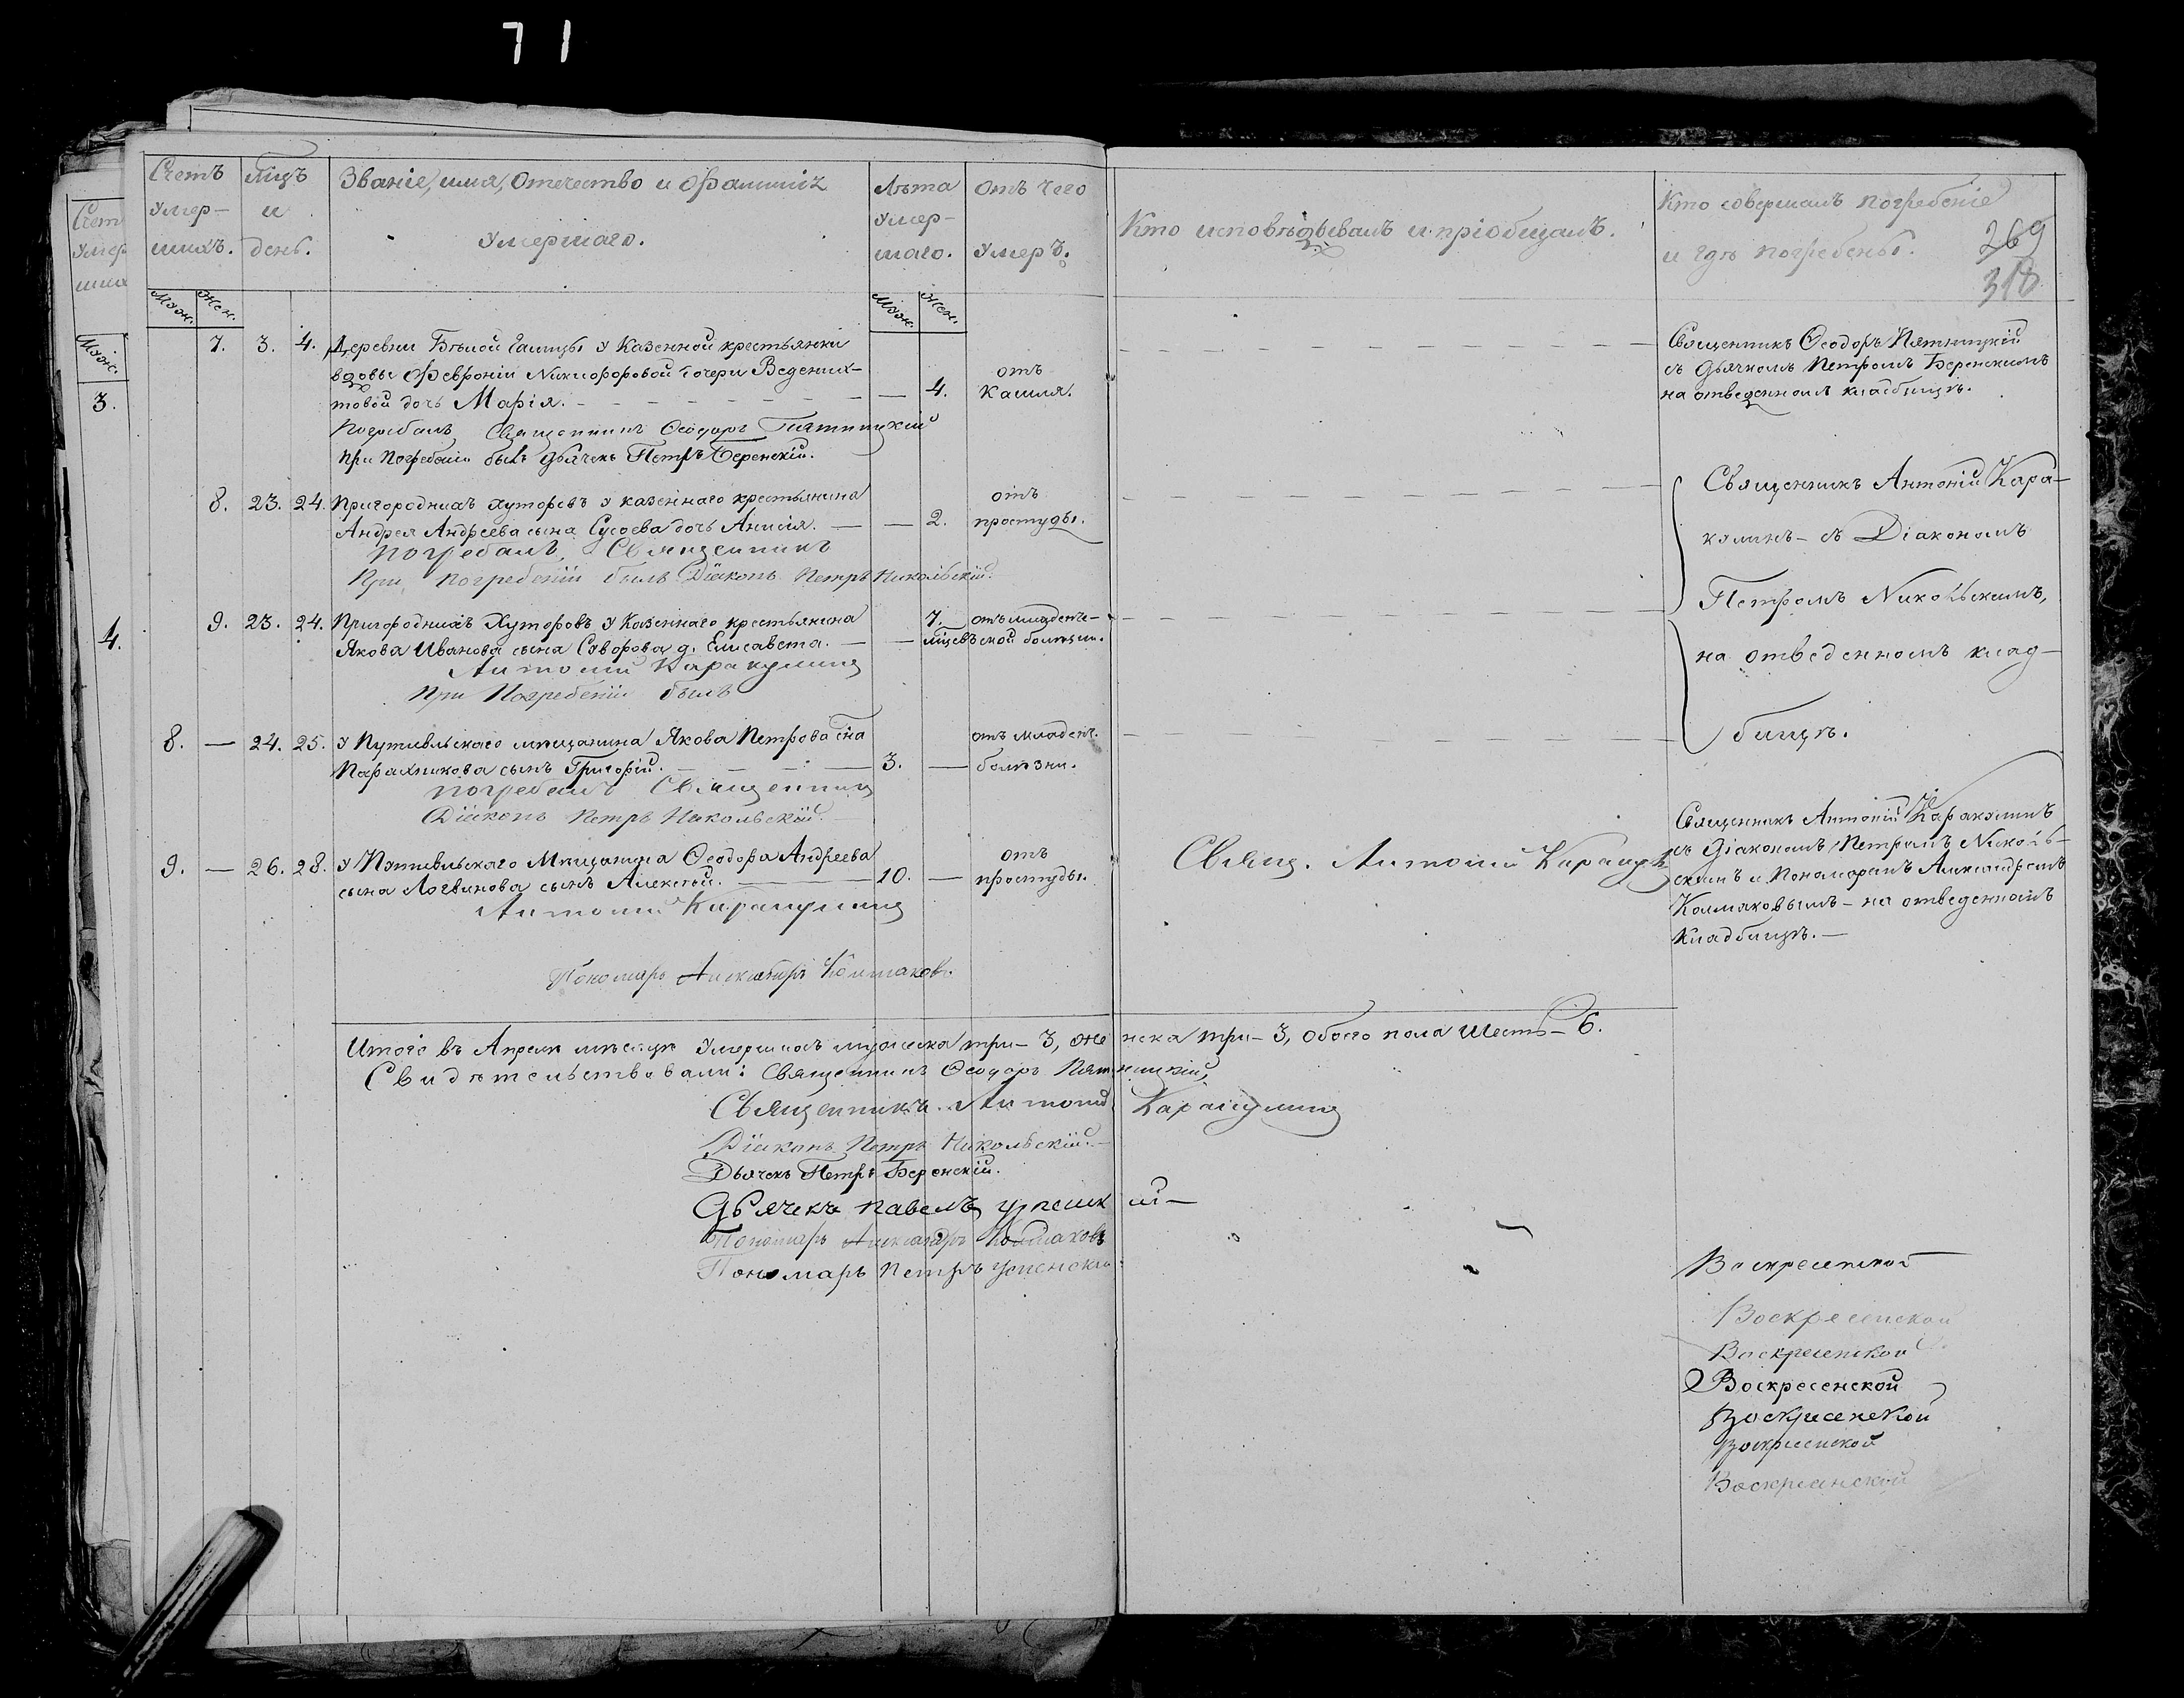 71
Счетъ
умер-
шихъ.
Муж.
Жен.
Мцъ
и
день.
Званіе, имя, отечество и фамилія
умершаго.
Лѣта
умер-
шаго.
Муж.
Жен.
Отъ чего
умеръ.
Кто исповѣдывалъ и пріобщалъ.
Кто совершалъ погребеніе
и гдѣ погребены.
269
318
Счет
умер
ших
Муж.
3.
4.
7. 3. 4. Деревни Бѣлой Галицы у казенной крестьянки
вдовы Февроніи Никифоровой дочери
товой дочь Марія. — — 4. отъ
кашля.
Погребалъ Священникъ Ѳеодоръ Пятницкій
При погребеніи былъ дьячекъ Петръ Беренскій.
Священникъ Ѳеодоръ Пятницкій
съ дьячкомъ Петромъ Беренскимъ
на отведенномъ кладбищѣ.
8. 23. 24. Пригородныхъ хуторовъ у казеннаго крестьянина
Андрея Андреева сына Сусоева дочь Анисія. — — 2. отъ
простуды.
Погребалъ Священникъ
При погребеніи былъ Діаконъ Петръ Никольскій.
9. 23. 24. Пригородныхъ Хуторовъ у Казеннаго крестьянина
Якова Иванова сына Саворова д. Елисавета. — — 7. отъ младенче-
ской болѣзни.
Антоній Каракулинъ
При Погребеніи былъ
8. — 24. 25. у Путивльскаго мѣщанина Якова Петрова сна
сынъ Григорій. — 3. — отъ младенч.
болѣзни.
погребалъ Священникъ
Діаконъ Петръ Никольскій.
Священникъ Антоній Кара-
кулинъ — съ Діакономъ
Петромъ Никольскимъ,
на отведенномъ клад-
бищѣ.
9. — 26. 28. у Путивльскаго Мѣщанина Ѳеодора Андреева
сына Логвинова сынъ Алексѣй. — 10. — отъ
простуды.
Антоній Каракулинъ
Пономарь Александръ Колмаковъ.
Свящ. Антоній Каракул
Священникъ Антоній Каракулинъ
съ Діакономъ Петромъ Николь-
скимъ и Пономаремъ Александромъ
Колмаковымъ — на отведенномъ
кладбищѣ. —
Итого въ Апрелѣ мѣсяцѣ умершихъ мужеска три — 3, женска три — 3, обоего пола шесть — 6.
Свидѣтельствовали: Священникъ Ѳеодоръ Пятницкій,
Священникъ Антоній Каракулинъ
Діаконъ Петръ Никольскій. —
Дьячекъ Петръ Беренскій.
Дьячекъ Павелъ
Пономарь Александръ Колмаковъ
Пономарь Петръ Успенскій
Воскресенской
Воскресенской
Воскресенской
Воскресенской
Воскресенской
Воскресенской
Воскресенской